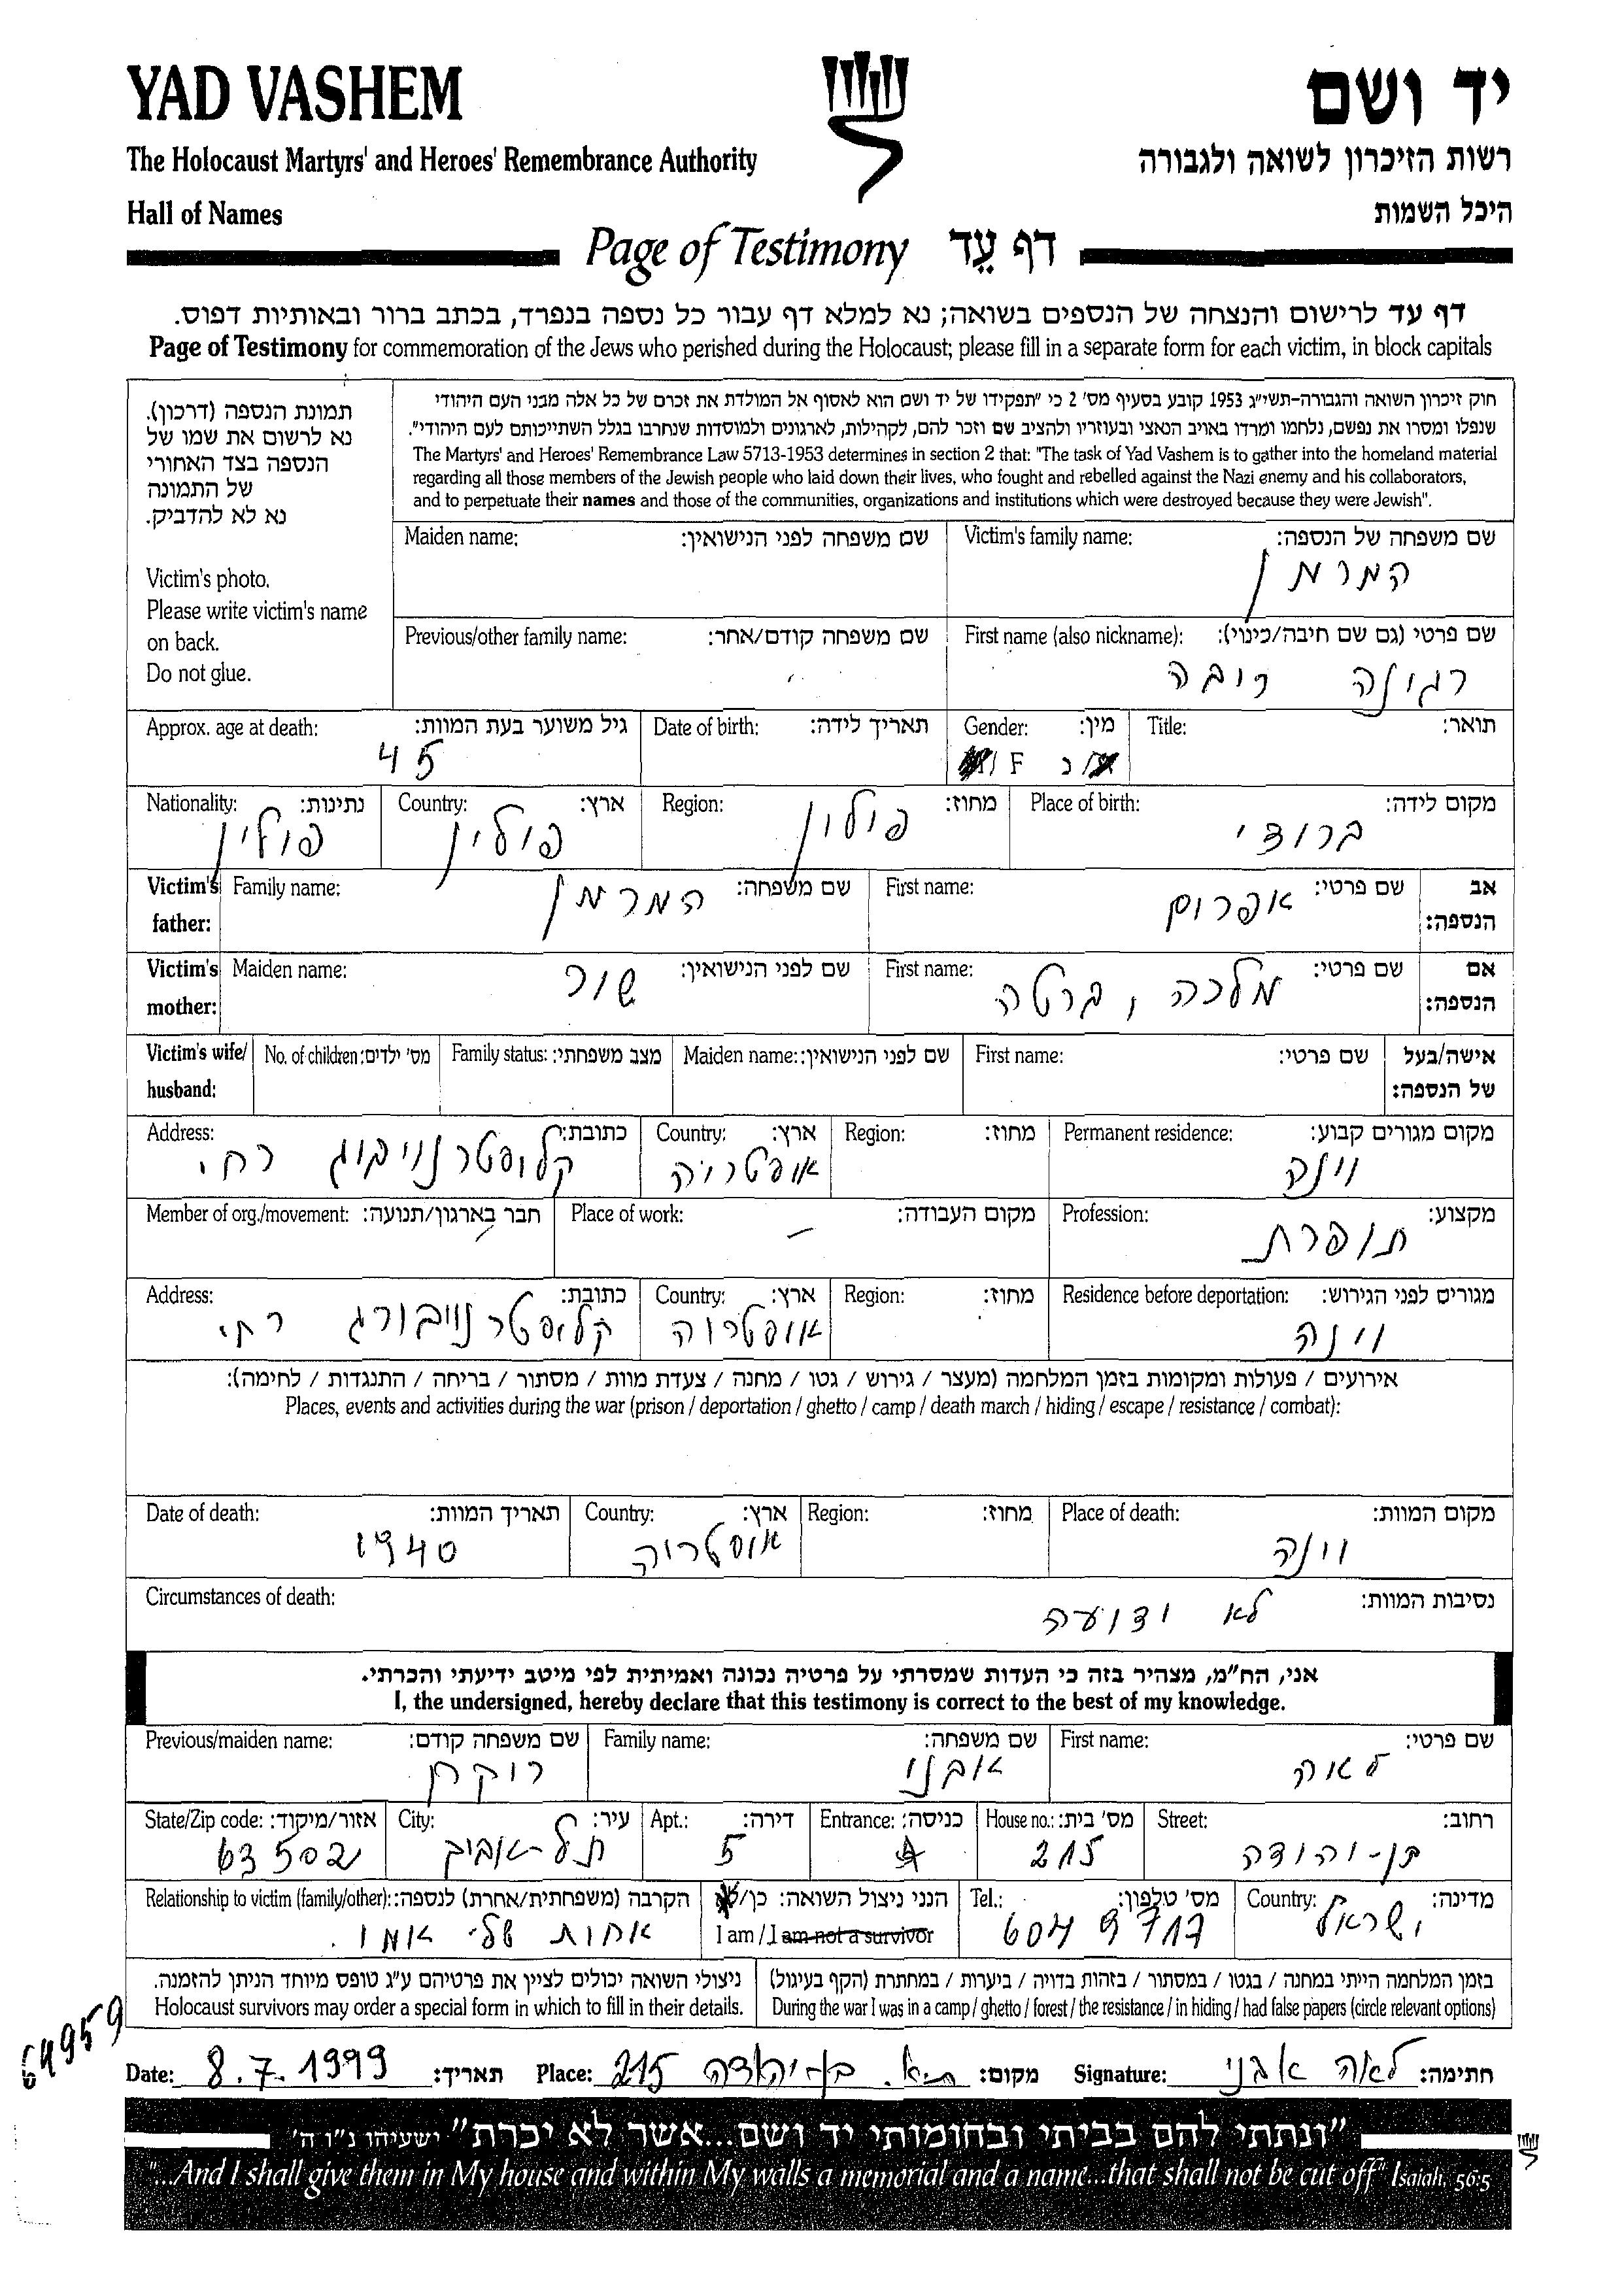 YAD VASHEM
יד ושם
The Holocaust Martyrs' and Heroes' Remembrance Authority
רשות הזיכרון לשואה ולגבורה
Hall of Names
היכל השמות
Page of Testimony דף עֵד
דף עד לרישום והנצחה של הנספים בשואה; נא למלא דף עבור כל נספה בנפרד, בכתב ברור ובאותיות דפוס.
Page of Testimony for commemoration of the Jews who perished during the Holocaust; please fill in a separate form for each victim, in block capitals
תמונת הנספה (דרכון).
נא לרשום את שמו של
הנספה בצד האחורי
של התמונה
נא לא להדביק.
Victim's photo.
Please write victim's name
on back.
Do not glue.
חוק זיכרון השואה והגבורה-תשי"ג 1953 קובע בסעיף מס' 2 כי "תפקידו של יד ושם הוא לאסוף אל המולדת את זכרם של כל אלה מבני העם היהודי
שנפלו ומסרו את נפשם, נלחמו ומרדו באויב הנאצי ובעוזריו ולהציב שם וזכר להם, לקהילות, לארגונים ולמוסדות שנחרבו בגלל השתייכותם לעם היהודי".
The Martyrs' and Heroes' Remembrance Law 5713-1953 determines in section 2 that: "The task of Yad Vashem is to gather into the homeland material
regarding all those members of the Jewish people who laid down their lives, who fought and rebelled against the Nazi enemy and his collaborators,
and to perpetuate their names and those of the communities, organizations and institutions which were destroyed because they were Jewish".
Victim's family name: שם משפחה של הנספה:
המרמן
Maiden name: שם משפחה לפני הנישואין:
First name (also nickname): שם פרטי (גם שם חיבה/כינוי):
רגינה ריבה
Previous/other family name: שם משפחה קודם/אחר:
Title: תואר:
Gender: מין:
F נ
Date of birth: תאריך לידה:
Approx. age at death: גיל משוער בעת המוות:
45
Place of birth: מקום לידה:
ברודי
Region: מחוז:
פולין
Country: ארץ:
פולין
Nationality: נתינות:
פולין
Victim's father: אב הנספה:
First name: שם פרטי:
אפרים
Family name: שם משפחה:
המרמן
Victim's mother: אם הנספה:
First name: שם פרטי:
מלכה, ברטה
Maiden name: שם לפני הנישואין:
שור
Victim's wife/ husband: אישה/בעל של הנספה:
First name: שם פרטי:
Maiden name: שם לפני הנישואין:
Family status: מצב משפחתי:
No. of children: מס' ילדים:
Permanent residence: מקום מגורים קבוע:
וינה
Region: מחוז:
Country: ארץ:
אוסטריה
Address: כתובת:
קלוסטרנויבורג רח'
Profession: מקצוע:
תופרת
Place of work: מקום העבודה:
–
Member of org./movement: חבר בארגון/תנועה:
Residence before deportation: מגורים לפני הגירוש:
וינה
Region: מחוז:
Country: ארץ:
אוסטריה
Address: כתובת:
קלוסטרנויבורג רח'
אירועים / פעולות ומקומות בזמן המלחמה (מעצר / גירוש / גטו / מחנה / צעדת מוות / מסתור / בריחה / התנגדות / לחימה):
Places, events and activities during the war (prison / deportation / ghetto / camp / death march / hiding / escape / resistance / combat):
Place of death: מקום המוות:
וינה
Region: מחוז:
Country: ארץ:
אוסטריה
Date of death: תאריך המוות:
1940
Circumstances of death: נסיבות המוות:
לא ידועה
אני, הח"מ, מצהיר בזה כי העדות שמסרתי על פרטיה נכונה ואמיתית לפי מיטב ידיעתי והכרתי.
I, the undersigned, hereby declare that this testimony is correct to the best of my knowledge.
First name: שם פרטי:
לאה
Family name: שם משפחה:
אבני
Previous/maiden name: שם משפחה קודם:
רוקח
Street: רחוב:
בן-יהודה
House no.: מס' בית:
215
Entrance: כניסה:
Apt.: דירה:
5
City: עיר:
תל-אביב
State/Zip code: אזור/מיקוד:
63502
Country: מדינה:
ישראל
Tel.: מס' טלפון:
604 9717
הנני ניצול השואה: כן/
I am / I am not a survivor
Relationship to victim (family/other): הקרבה (משפחתית/אחרת) לנספה:
אחות של אמי.
בזמן המלחמה הייתי במחנה / בגטו / במסתור / בזהות בדויה / ביערות / במחתרת (הקף בעיגול)
During the war I was in a camp / ghetto / forest / the resistance / in hiding / had false papers (circle relevant options)
ניצולי השואה יכולים לציין את פרטיהם ע"ג טופס מיוחד הניתן להזמנה.
Holocaust survivors may order a special form in which to fill in their details.
64959
Date: 8.7.1999 תאריך: Place: ת"א. בן יהודה 215 מקום: Signature: לאה אבני חתימה:
"ונתתי להם בביתי ובחומותי יד ושם...אשר לא יכרת" ישעיהו נ"ו ה'
"...And I shall give them in My house and within My walls a memorial and a name...that shall not be cut off" Isaiah, 56:5